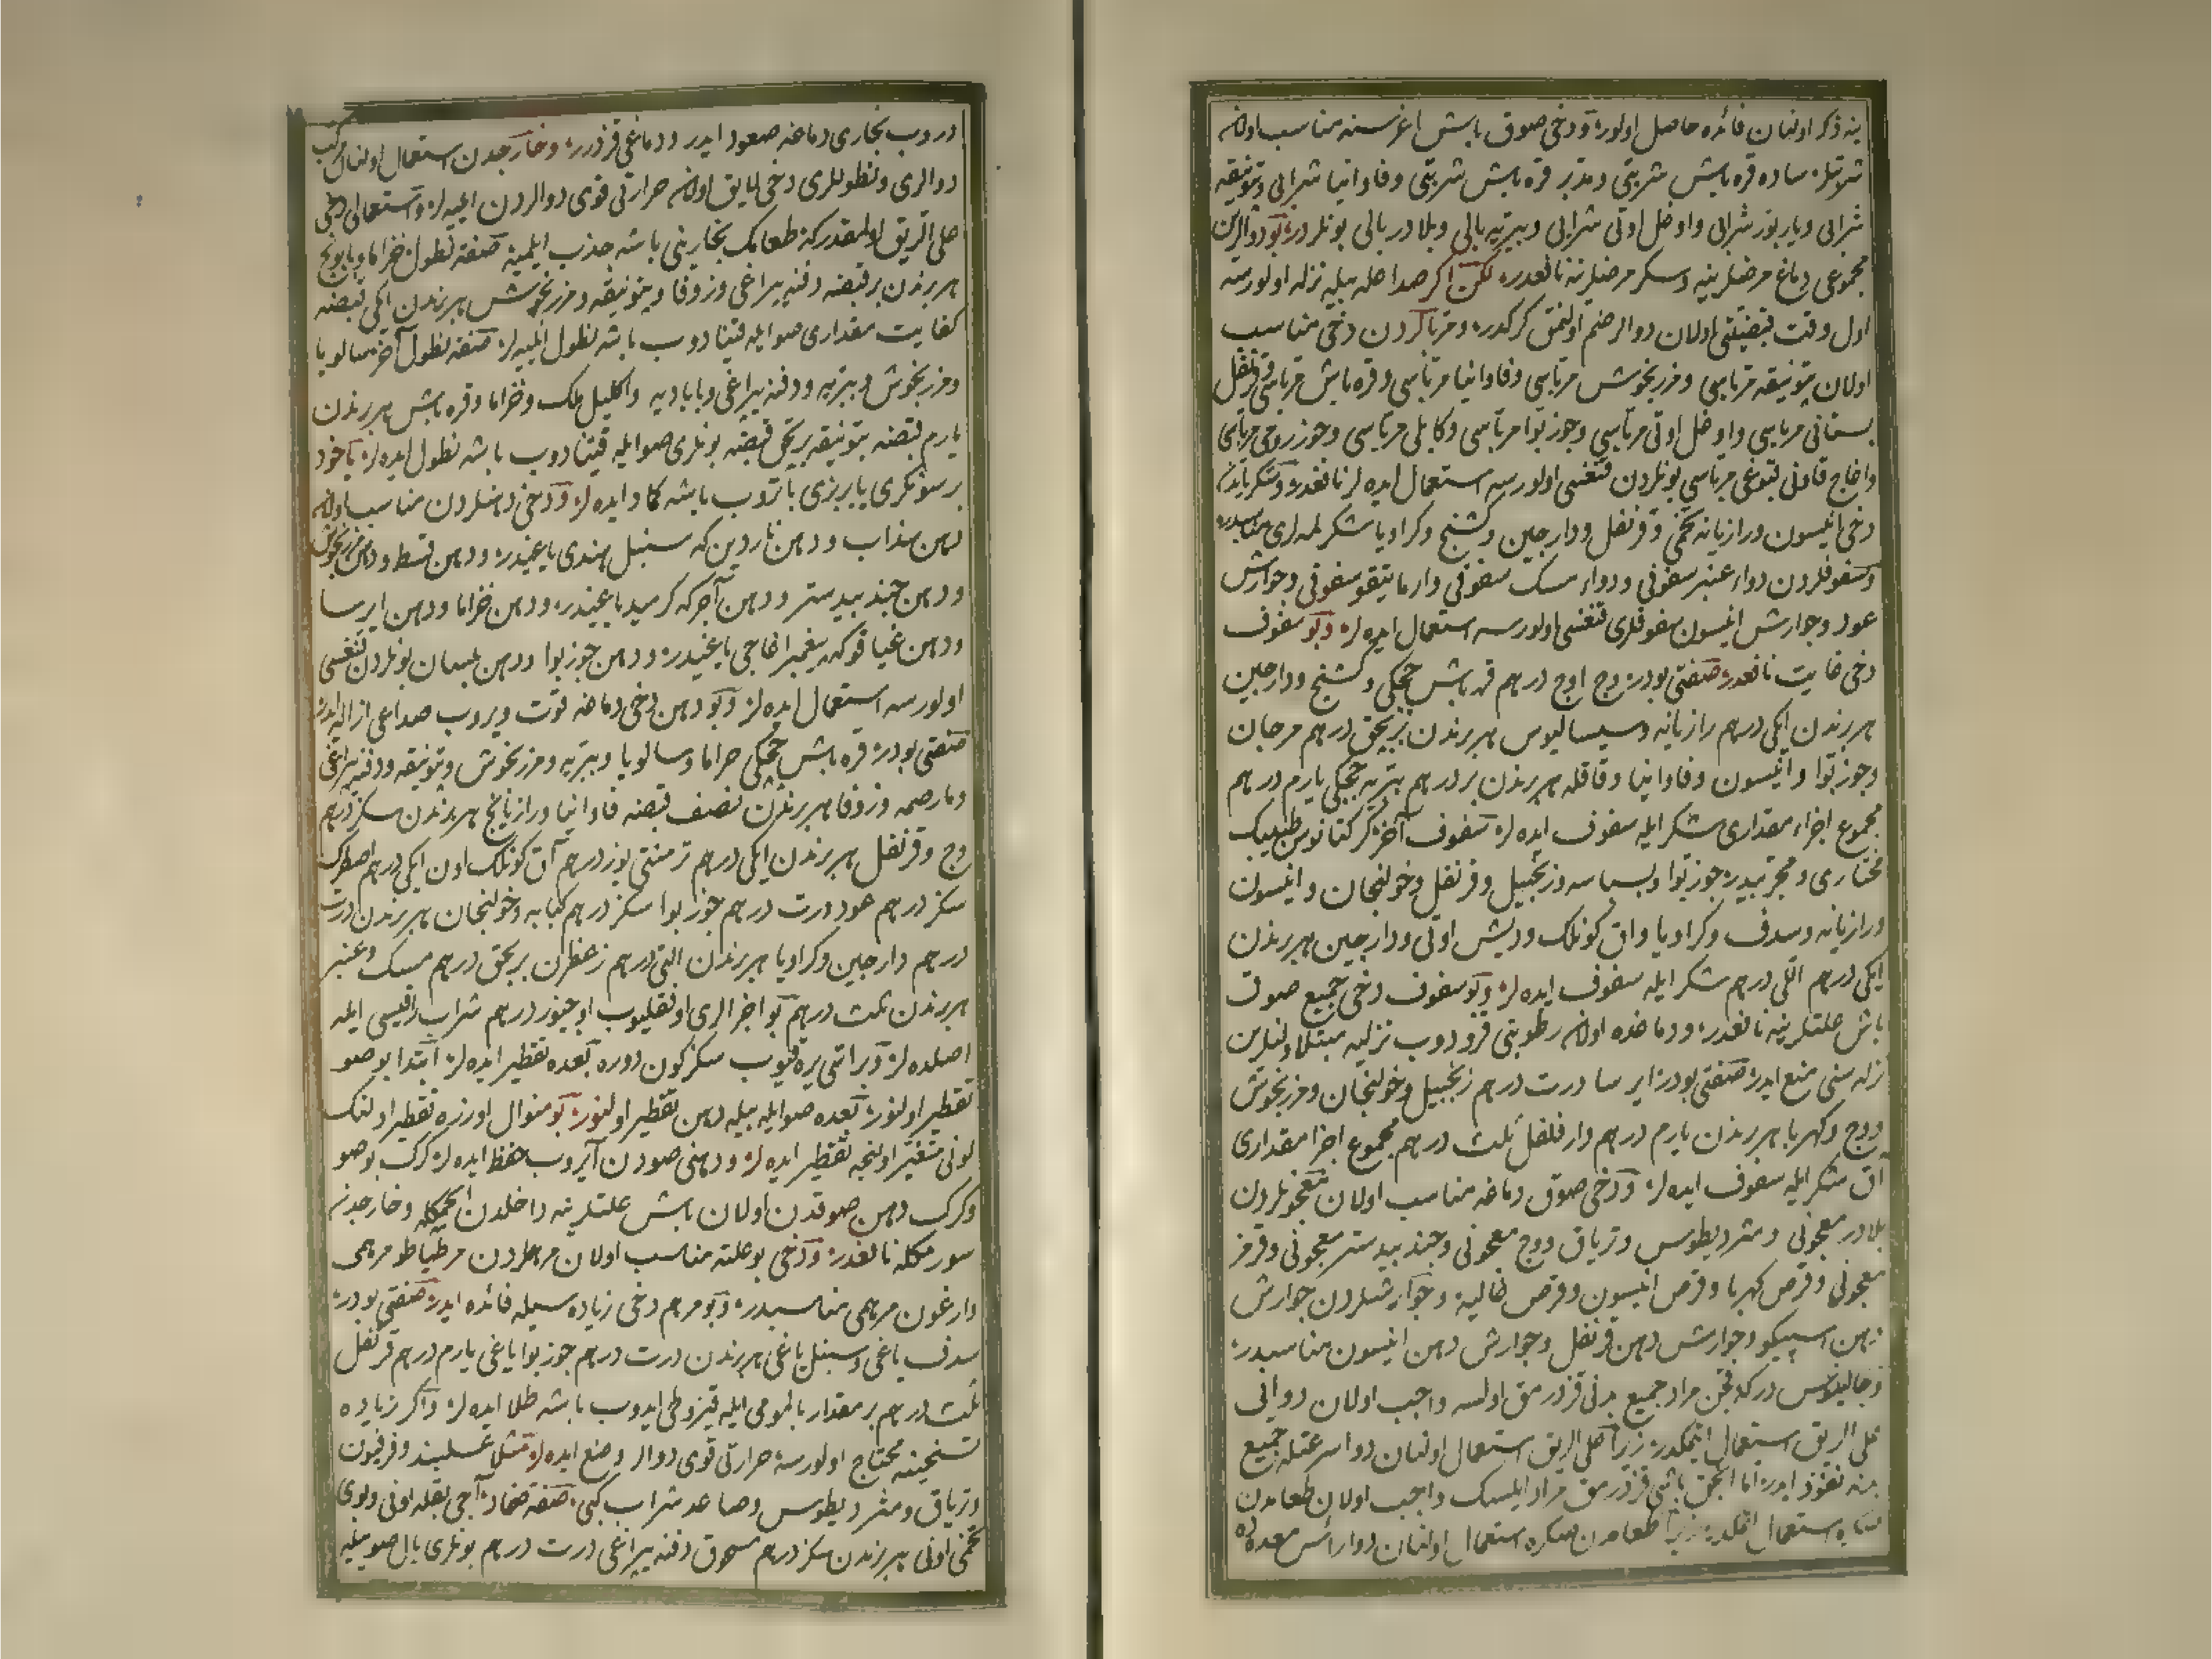 ينه ذكر اولنان فائده حاصل اولور ودخی صوق باش اغرسنه مناسب اولان
شربتلر ساده قره باش شربتی ومدبر قره باش شربتی وفاوانيا شرابی وبتونيقه
شرابی وباربور شرابی واوغل اوتی شرابی وبيبريه بالی وبلادر بالی بونلردر بو دوالرك
مجموعی دماغ مرضلرينه وسكر مرضلرينه نافعدر لكن اكر صداعله بيله نزله اولورسه
اول وقت قبضيتی اولان دوالر ضم اولنمق كركدر ومرباكردن دخی مناسب
اولان بتونيقه مرباسی ومرزنجوش مرباسی وفاوانيا مرباسی وقره باش مرباسی وقرنفل
بستانی مرباسی واوغل اوتی مرباسی وجوز بوا مرباسی وكابلی مرباسی وجوز رومی مرباسی
واغاج قاونی قبوغی مرباسی بونلردن قنغسی اولورسه استعمال ايده لر نافعدر وشكرياتدن
دخی انيسون ورازيانه تخمی وقرنفل ودارچين وكشنج وكراويا شكرلمه لری مناسبدر
وسفوفلردن دواء عنبر سفوفی ودواء مسك سفوفی وارماتيقو سفوفی وجوارش
عود وجوارش انيسون سفوفلری قنغسی اولورسه استعمال ايده لر وبو سفوف
دخی غايت نافعدر صنعتی بودر وج اوج درهم قره باش چچكی وكشنج ودارچين
هر برندن ايكی درهم رازيانه وسيساليوس هر برندن بربچق درهم مرجان
وجوز بوا وانيسون وفاوانيا وقاقله هر برندن بر درهم بيبريه چچكی يارم درهم
مجموع اجزاء مقداری شكر ايله سفوف ايده لر سفوف آخر كركتانوس طبيبك
مختاری ومجربيدر جوز بوا وبسباسه وزنجبيل وقرنفل وخولنجان وانيسون
ورازيانه وسدف وكراويا واق كونلك وديش اوتی ودارچين هر برندن
ايكی درهم اللی درهم شكر ايله سفوف ايده لر وبو سفوف دخی جميع صوق
باش علتلرينه نافعدر ودماغده اولان رطوبتی قرودوب نزليه مبتلا اولنلرين
نزله سنی منع ايدر صنعتی بودر ايرسا درت درهم زنجبيل وخولنجان ومرزنجوش
ووج وكهربا هر برندن يارم درهم دارفلفل ثلث درهم مجموع اجزا مقداری
آق شكر ايله سفوف ايده لر ودخی صوق دماغه مناسب اولان معجونلردن
بلادر معجونی ومثروديطوس وترياق ووج معجونی وجندبيدستر معجونی وقرمز
معجونی وقرص كهربا وقرص انيسون وقرص غاليه وجوارشلردن جوارش
دهن اسپيكو وجوارش دهن قرنفل وجوارش دهن انيسون مناسبدر
وجالينوس دركه قچن مراد جميع بدنی قزدرمق اولسه واجب اولان دوايی
علی الريق استعمال ايتمكدر زيرا علی الريق استعمال اولنان دوا سرعتله جميع
بدنه نفوذ ايدر اما انجق باشی قزدرمق مراد ايلسك واجب اولان طعامدن
صكره استعمال ايتمكدر زيرا طعامدن صكره استعمال اولنان دوا رأس معده ده
دروب بخاری دماغه صعود ايدر ودماغی قزدرر وخارجدن استعمال اولنان مركب
دوالری ونطوللری دخی لايق اولان حرارتی قوی دوالردن ايليه لر واستعمالی دخی
علی الريق اولمقدركه طعامك بخارينی باشه جذب ايلميه صنعة نطول خزاما وبابونج
هر برندن بر قبضه دفنه يپراغی وزوفا وبتونيقه ومرزنجوش هر برندن ايكی قبضه
كفايت مقداری صو ايله قينادوب باشه نطول ايليه لر صنعة نطول آخر سالويا
ومرزنجوش وبيبريه ودفنه يپراغی وبابادیه واكليل ملك وخزاما وقره باش هر برندن
يارم قبضه بتونيقه بربچق قبضه بونلری صو ايله قينادوب باشه نطول ايده لر ياخود
بر سونكری يا بر بزی باتروب باشه كماد ايده لر ودخی دهنلردن مناسب اولان
دهن سذاب ودهن ناردين كه سنبل هندی ياغيدر ودهن قسط ودهن مرزنجوش
ودهن جندبيدستر ودهن آجر كه كرميد ياغيدر ودهن خزاما ودهن ايرسا
ودهن غياقو كه پيغمبر اغاجی ياغيدر ودهن جوز بوا ودهن بلسان بونلردن قنغسی
اولورسه استعمال ايده لر وبو دهن دخی دماغه قوت ويروب صداعی ازاله ايدر
صنعتی بودر قره باش چچكی خزاما وسالويا وبيبريه ومرزنجوش وبتونيقه ودفنه يپراغی
ومارصمه وزوفا هر برندن نصف قبضه فاوانيا ورازيانج هر برندن سكز درهم
وج وقرنفل هر برندن ايكی درهم ترمنتی يوز درهم آق كونلك اون ايكی درهم اصطرك
سكز درهم عود درت درهم جوز بوا سكز درهم كبابه وخولنجان هر برندن درت
درهم دارچين وكراويا هر برندن التی درهم زعفران بربچق درهم مسك وعنبر
هر برندن ثلث درهم بو اجزالری اوفقليوب اوچيوز درهم شراب راقيسی ايله
اصلده لر وبراتی يره قيوب سكز كون دوره بعده تقطير ايده لر ابتدا بو صو
تقطير اولنور بعده صو ايله بيله دهن تقطير اولنور بو منوال اوزره تقطير اولنك
لونی متغير اولنجه تقطير ايده لر ودهنی صودن آيروب حفظ ايده لر كرك بو صو
وكرك دهن صوقدن اولان باش علتلرينه داخلدن ايچمكله وخارجدن
سورمكله نافعدر ودخی بو علته مناسب اولان مرهملردن مرطياطو مرهمی
وارغون مرهمی مناسبدر وبو مرهم دخی زياده سيله فائده ايدر صنعتی بودر
سدف ياغی وسنبل ياغی هر برندن درت درهم جوز بوا ياغی يارم درهم قرنفل
ثلث درهم بر مقدار بالمومی ايله قيروطی ايدوب باشه طلا ايده لر واكر زياده
تسخينه محتاج اولورسه حرارتی قوی دوالر وضع ايده لر مثلا عسلبند وفرفيون
وترياق ومثروديطوس وصاعد شراب كبی صنعة ضماد آجی بقله اونی وبوی
تخمی اونی هر برندن سكز درهم مسحوق دفنه يپراغی درت درهم بونلری بال صويله